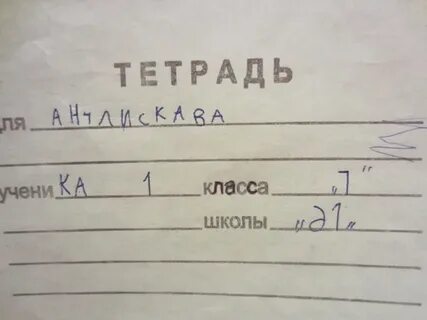 ТЕТРАДЬ
для АНЧЛИСКАВА
учениКА 1 класса „1"
школы „21„